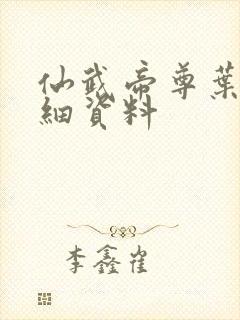 仙武帝尊葉
細資料
李鑫崔